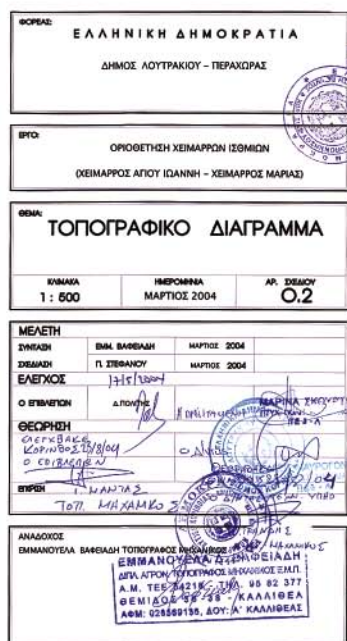 ΦΟΡΕΑΣ:
ΕΛΛΗΝΙΚΗ ΔΗΜΟΚΡΑΤΙΑ
ΔΗΜΟΣ ΛΟΥΤΡΑΚΙΟΥ – ΠΕΡΑΧΩΡΑΣ
ΕΡΓΟ:
ΟΡΙΟΘΕΤΗΣΗ ΧΕΙΜΑΡΡΩΝ ΙΣΘΜΙΩΝ
(ΧΕΙΜΑΡΡΟΣ ΑΓΙΟΥ ΙΩΑΝΝΗ – ΧΕΙΜΑΡΡΟΣ ΜΑΡΙΑΣ)
ΘΕΜΑ:
ΤΟΠΟΓΡΑΦΙΚΟ ΔΙΑΓΡΑΜΜΑ
ΚΛΙΜΑΚΑ ΗΜΕΡΟΜΗΝΙΑ ΑΡ. ΣΧΕΔΙΟΥ
1 : 500 ΜΑΡΤΙΟΣ 2004 Ο.2
ΜΕΛΕΤΗ
ΣΥΝΤΑΞΗ ΕΜΜ. ΒΑΦΕΙΑΔΗ ΜΑΡΤΙΟΣ 2004
ΣΧΕΔΙΑΣΗ Π. ΣΤΕΦΑΝΟΥ ΜΑΡΤΙΟΣ 2004
ΕΛΕΓΧΟΣ 17/5/2004
Ο ΕΠΙΒΛΕΠΩΝ Δ.ΠΟΝΤΗΣ Η ΠΡΟΪΣΤΑΜΕΝΗ ΜΑΡΙΝΑ
ΘΕΩΡΗΣΗ
ΚΟΡΙΝΘΟΣ
Ο ΕΠΙΒΛΕΠΩΝ
Ι. ΝΑΝΤΑΣ
ΤΟΠ. ΜΗΧΑΝΙΚΟΣ
ΑΝΑΔΟΧΟΣ
ΕΜΜΑΝΟΥΕΛΑ ΒΑΦΕΙΑΔΗ ΤΟΠΟΓΡΑΦΟΣ ΜΗΧΑΝΙΚΟΣ
ΕΜΜΑΝΟΥΕΛΑ Δ. ΒΑΦΕΙΑΔΗ
ΔΙΠΛ. ΑΓΡΟΝ. ΤΟΠΟΓΡΑΦΟΣ ΜΗΧΑΝΙΚΟΣ Ε.Μ.Π.
Α.Μ. ΤΕΕ 54215 - ΤΗΛ. 95 82 377
ΘΕΜΙΔΟΣ 36-38 - ΚΑΛΛΙΘΕΑ
ΑΦΜ: 028569138, ΔΟΥ: Α' ΚΑΛΛΙΘΕΑΣ